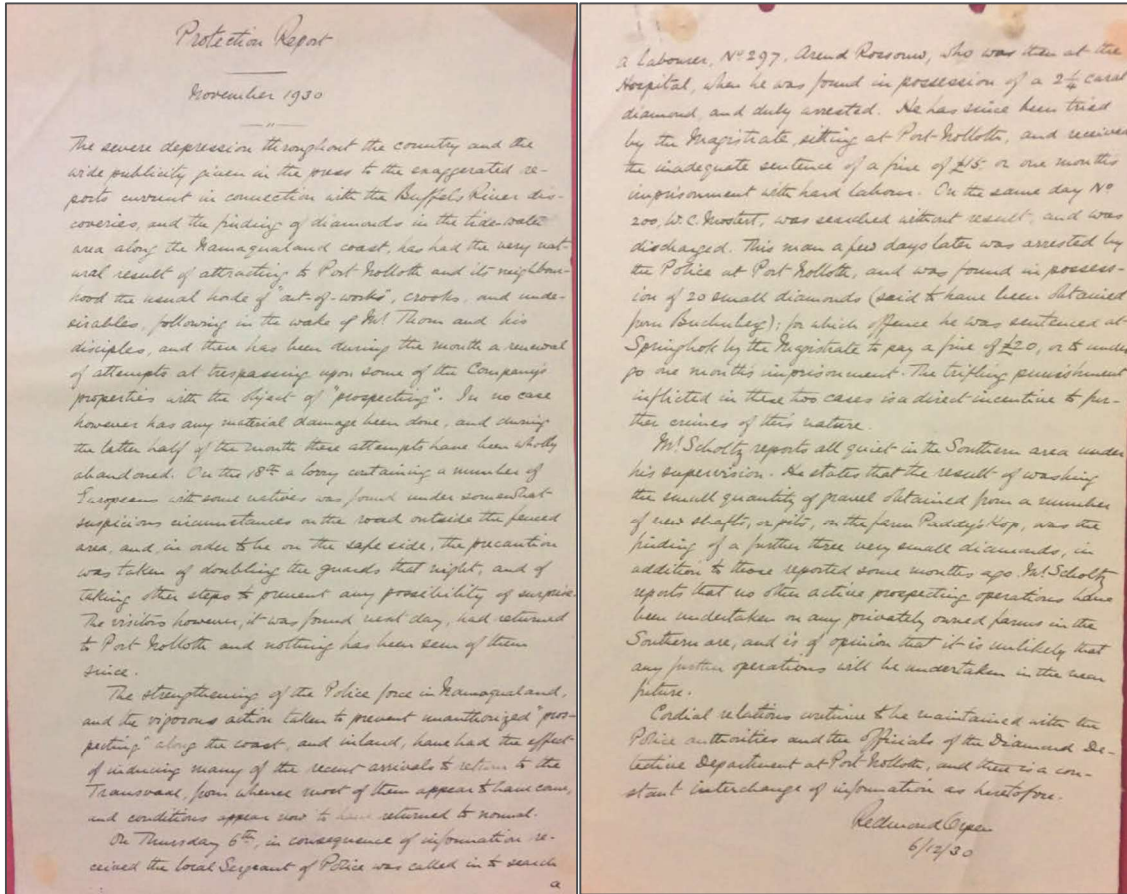 Protection Report
November 1930
The severe depression throughout the country and the
wide publicity given in the press to the exaggerated re-
ports current in connection with the Buffels River dis-
coveries, and the finding of diamonds in the tide-water
area along the Namaqualand coast, has had the very nat-
ural result of attracting to Port Nolloth and its neighbour-
hood the usual horde of "out-of-works", crooks, and unde-
sirables, following in the wake of Mr. Thom and his
disciples, and there has been during the month a renewal
of attempts at trespassing upon some of the Company's
properties with the object of "prospecting". In no case
however has any material damage been done, and during
the latter half of the month these attempts have been wholly
abandoned. On the 18th a lorry containing a number of
Europeans with some natives was found under somewhat
suspicious circumstances on the road outside the fenced
area, and, in order to be on the safe side, the precaution
was taken of doubling the guards that night, and of
taking other steps to prevent any possibility of surprise.
The visitors however, it was found next day, had returned
to Port Nolloth and nothing has been seen of them
since.
The strengthening of the Police force in Namaqualand,
and the vigorous action taken to prevent unauthorized "pros-
pecting" along the coast, and inland, have had the effect
of inducing many of the recent arrivals to return to the
Transvaal, from whence most of them appear to have come,
and conditions appear now to have returned to normal.
On Thursday 6th, in consequence of information re-
ceived the local Sergeant of Police was called in to search
a
a Labourer, No 297, Arend Rossouw, who was then at the
Hospital, when he was found in possession of a 2¼ carat
diamond, and duly arrested. He has since been tried
by the Magistrate, sitting at Port Nolloth, and received
the inadequate sentence of a fine of £15. or one months
imprisonment with hard labour. On the same day No
200, W. C. Mostert, was searched without result, and was
discharged. This man a few days later was arrested by
the Police at Port Nolloth, and was found in possess-
ion of 20 small diamonds (said to have been obtained
from Buchuberg); for which offence he was sentenced at
Springbok by the Magistrate to pay a fine of £20, or to under-
go one months imprisonment. The trifling punishment
inflicted in these two cases is a direct incentive to fur-
ther crimes of this nature.
Mr. Scholtz reports all quiet in the Southern area under
his supervision. He states that the result of washing
the small quantity of gravel obtained from a number
of new shafts, or pits, on the farm Paddy's Kop, was the
finding of a further three very small diamonds, in
addition to those reported some months ago. Mr. Scholtz
reports that no other active prospecting operations have
been undertaken on any privately owned farms in the
Southern are, and is of opinion that it is unlikely that
any further operations will be undertaken in the near
future.
Cordial relations continue to be maintained with the
Police authorities and the officials of the Diamond De-
tective Department at Port Nolloth, and there is a con-
stant interchange of information as heretofore.
Redmond Orpen
6/12/30